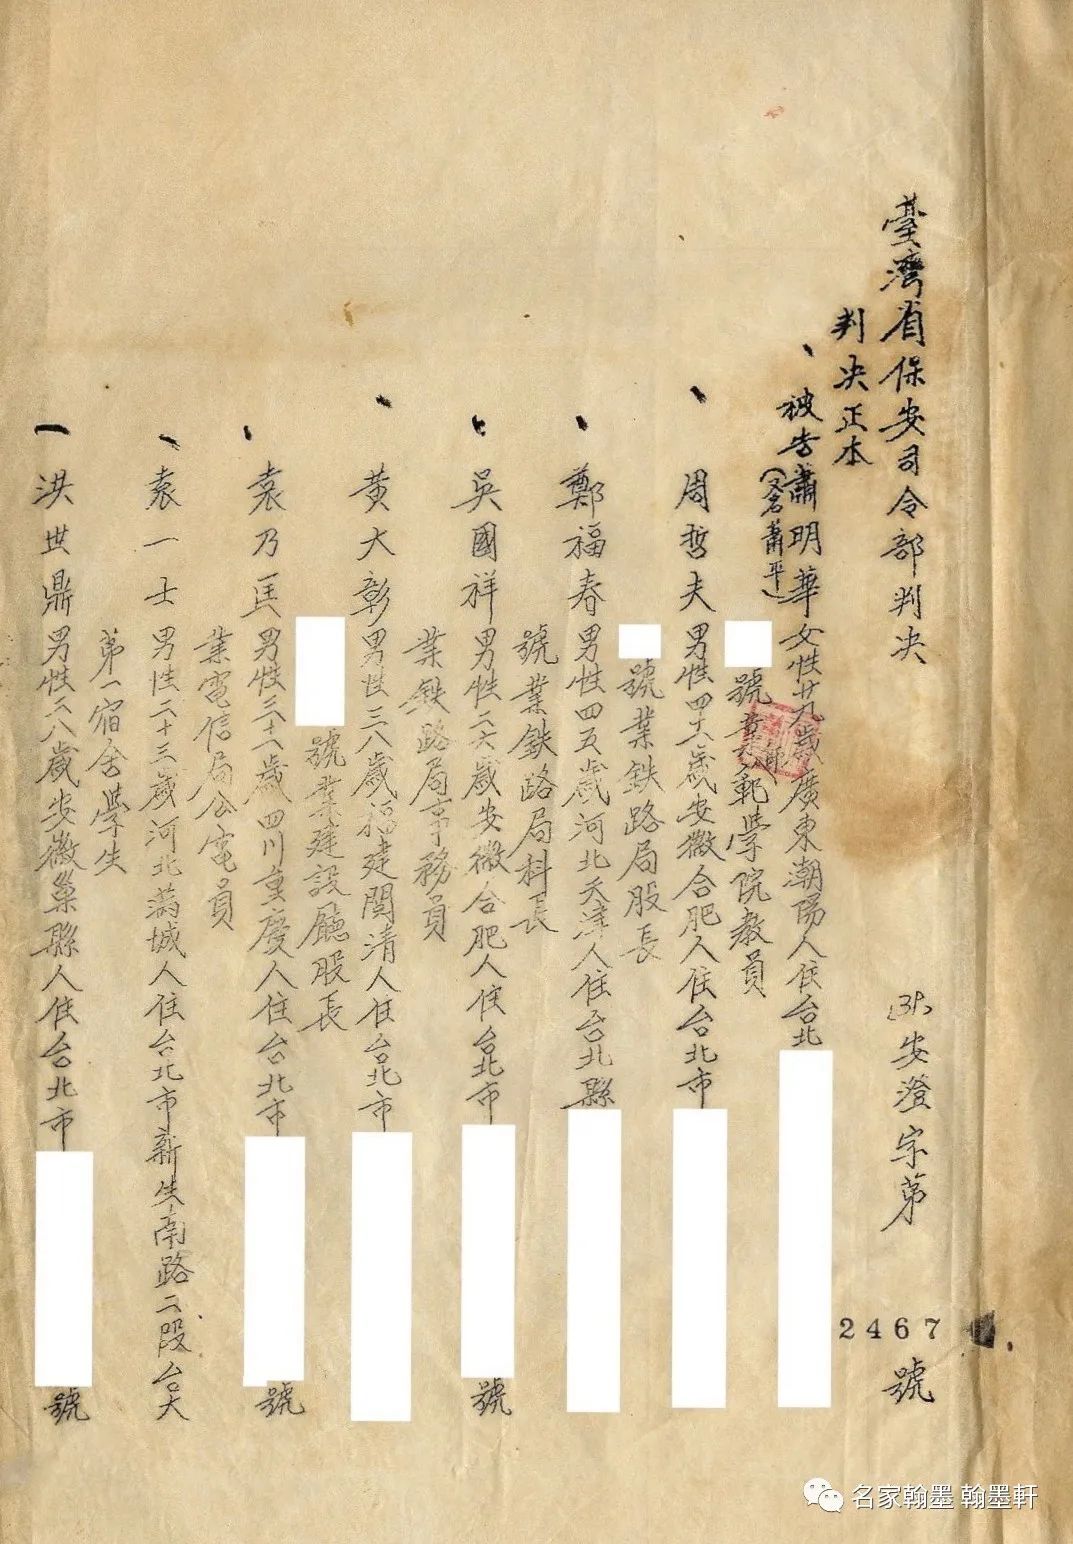 臺灣省保安司令部判決
(39)安澄字第
2467
號
判決正本
被告蕭明華女性廿九歲廣東潮陽人住台北
(又名蕭平)
號業師範學院教員
周哲夫男性四十六歲安徽合肥人住台北市
號業鉄路局股長
鄭福春男性四五歲河北天津人住台北縣
號業鉄路局科長
吳國祥男性二六歲安徽合肥人住台北市
號
業鉄路局事務員
黃大彰男性三八歲福建閩清人住台北市
號業建設廳股長
袁乃匡男性三十二歲四川重慶人住台北市
號
業電信局公電員
袁一士男性二十三歲河北滿城人住台北市新生南路二段台大
第一宿舍學生
洪世鼎男性二八歲安徽巢縣人住台北市
號
名家翰墨 翰墨軒